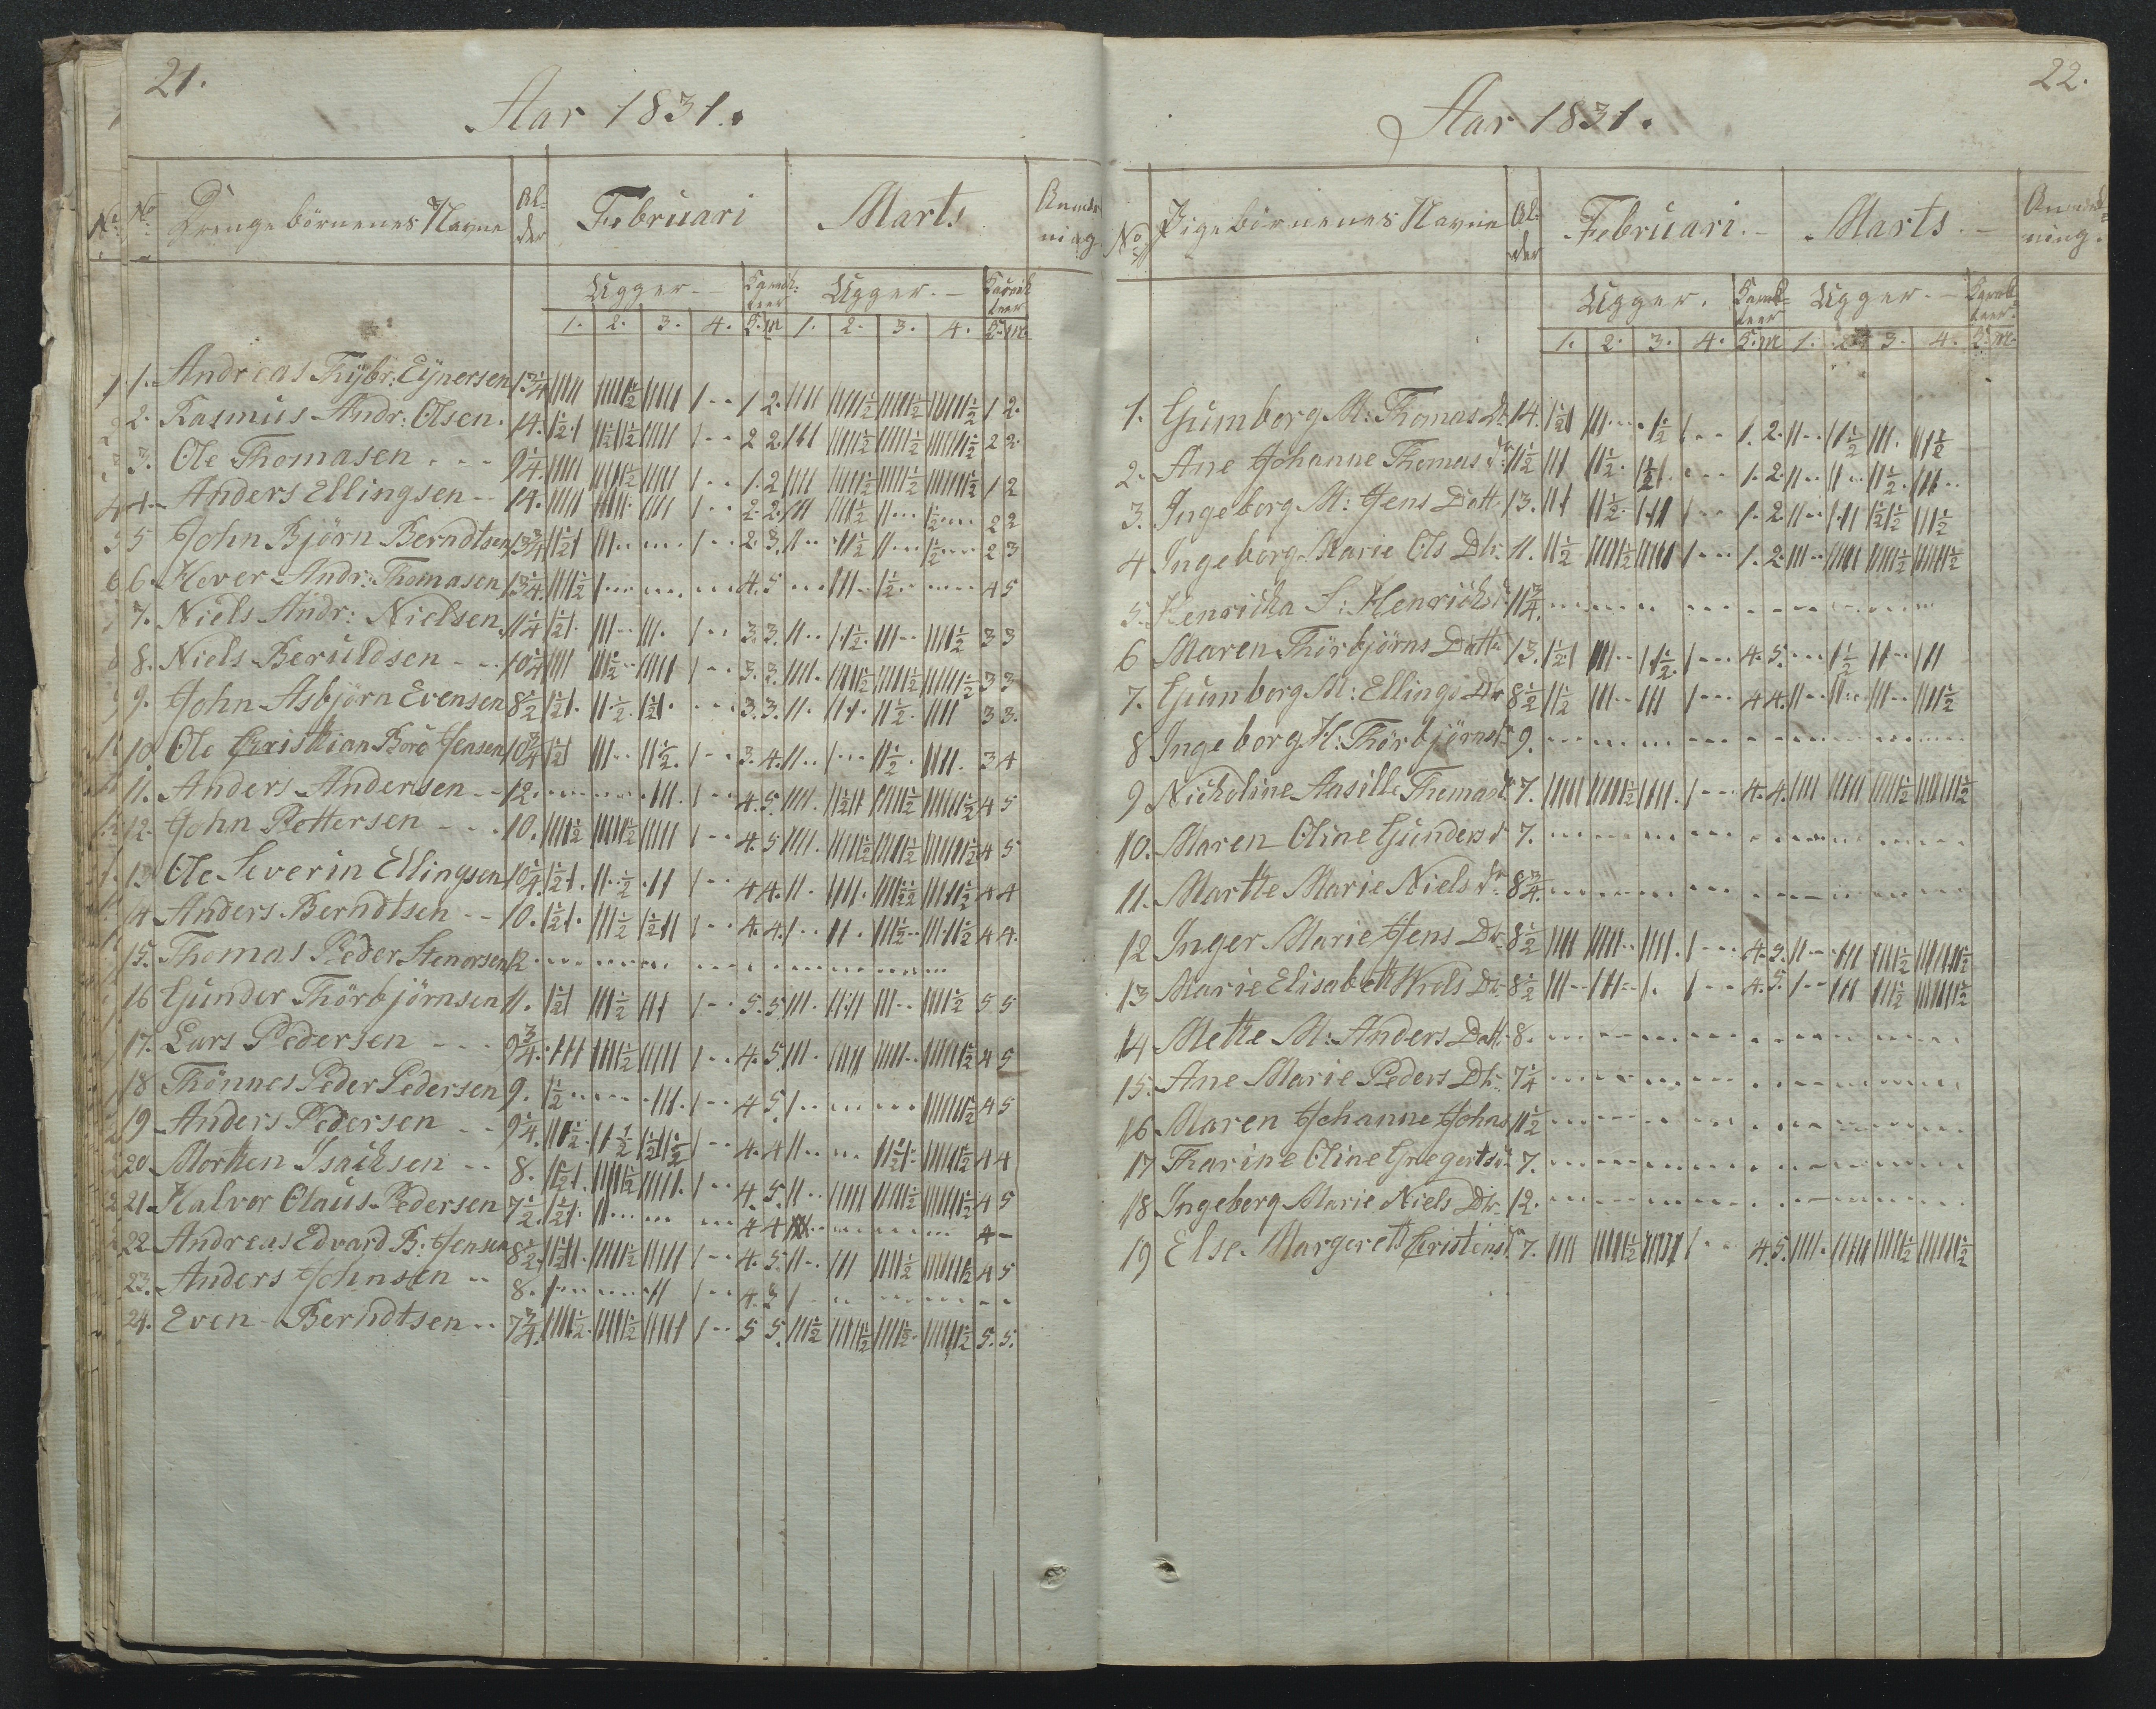 21.
Aar 1831.
No Drengebörnenes Navne Alder Februari Marts Anmerkning
Ugger Karakteer Ugger. Karakteer
1. 2. 3. 4. F. M 1. 2. 3. 4. F. M.
1. Andreas Thybr: Eynersen 13 1/4 1 2. 1 2.
2. Rasmus Andr: Olsen. 14. 2 2. 2 2.
3. Ole Thomasen 9 1/4 1. 2 1 2
4. Anders Ellingsen 14. 2. 2. 2 2
5 John Björn Berndtsen 13 3/4 2. 3. 2 3
6. Hever Andr: Thomasen 13 1/4 4. 5 4 5
7. Niels Andr: Nielsen 11 1/4 3. 3. 3 3
8. Niels Beruldsen 10 1/4 3. 3. 3 3
9. John Asbjörn Evensen 8 1/2 3. 3. 3 3.
10. Ole Christian Boré Jensen 10 3/4 3. 4. 3 4
11. Anders Andersen 12. 4. 5. 4 5
12. John Pettersen 10. 4. 5 4 5
13 Ole Severin Ellingsen 10 1/4 4 4. 4 4
14 Anders Berndtsen 10. 4. 4. 4 4.
15. Thomas Peder Stenorsen 12
16 Gunder Thörbjörnsen 11. 5. 5 5 5
17. Lars Pedersen 9 3/4. 4. 5. 4 5
18 Thönnes Peder Pedersen 9. 4 5. 4 5
19 Anders Pedersen 9 1/4. 4. 4 4 4
20 Morten Isacksen 8. 4. 5. 4 5
21. Halvor Olaus Pedersen 7 1/2. 4 4 4 -
22 Andreas Edvard B: Jensen 8 1/2. 4. 5. 4 5
23. Anders Johnsen 8. 4. 3
24. Even Berndtsen 7 3/4. 5 5. 5. 5.
22.
Aar 1831.
No Pigebörnenes Navne Alder Februari. Marts. Anmerkning.
Ugger. Karakteer Ugger. Karakteer.
1. 2. 3. 4. F. M 1. 2 3. 4. F. M.
1. Gumborg M: Thomas Dr. 14. 1. 2.
2. Ane Johanne Thomas dr 11 1/2 1. 2
3. Ingeborg M: Jens Datt 13. 1. 2
4 Ingeborg Marie Ols Dtr. 11. 1. 2
5. Henricka S: Henricks dr 11 3/4.
6 Maren Thörbjörns Datter 13. 4. 5.
7. Gumborg M: Ellings Dtr 8 1/2 4 4.
8 Ingeborg H: Thörbjörns dr 9.
9. Nicholine Aasille Thomas dr 7. 4. 4.
10. Maren Oline Gunders dr 7.
11. Marthe Marie Niels dr 8 3/4.
12 Inger Marie Jens Dtr 8 1/2 4. 3.
13 Marie Elisabeth Niels Dtr 8 1/2 4. 5.
14 Mette M: Anders Datt 8.
15. Ane Marie Peders Dtr. 7 1/4
16 Maren Johanne Johns 11 1/2
17 Tharine Oline Gregerts dr 7.
18 Ingeborg Marie Niels Dtr. 12.
19 Else Margereth Christens dr 7. 4 5.